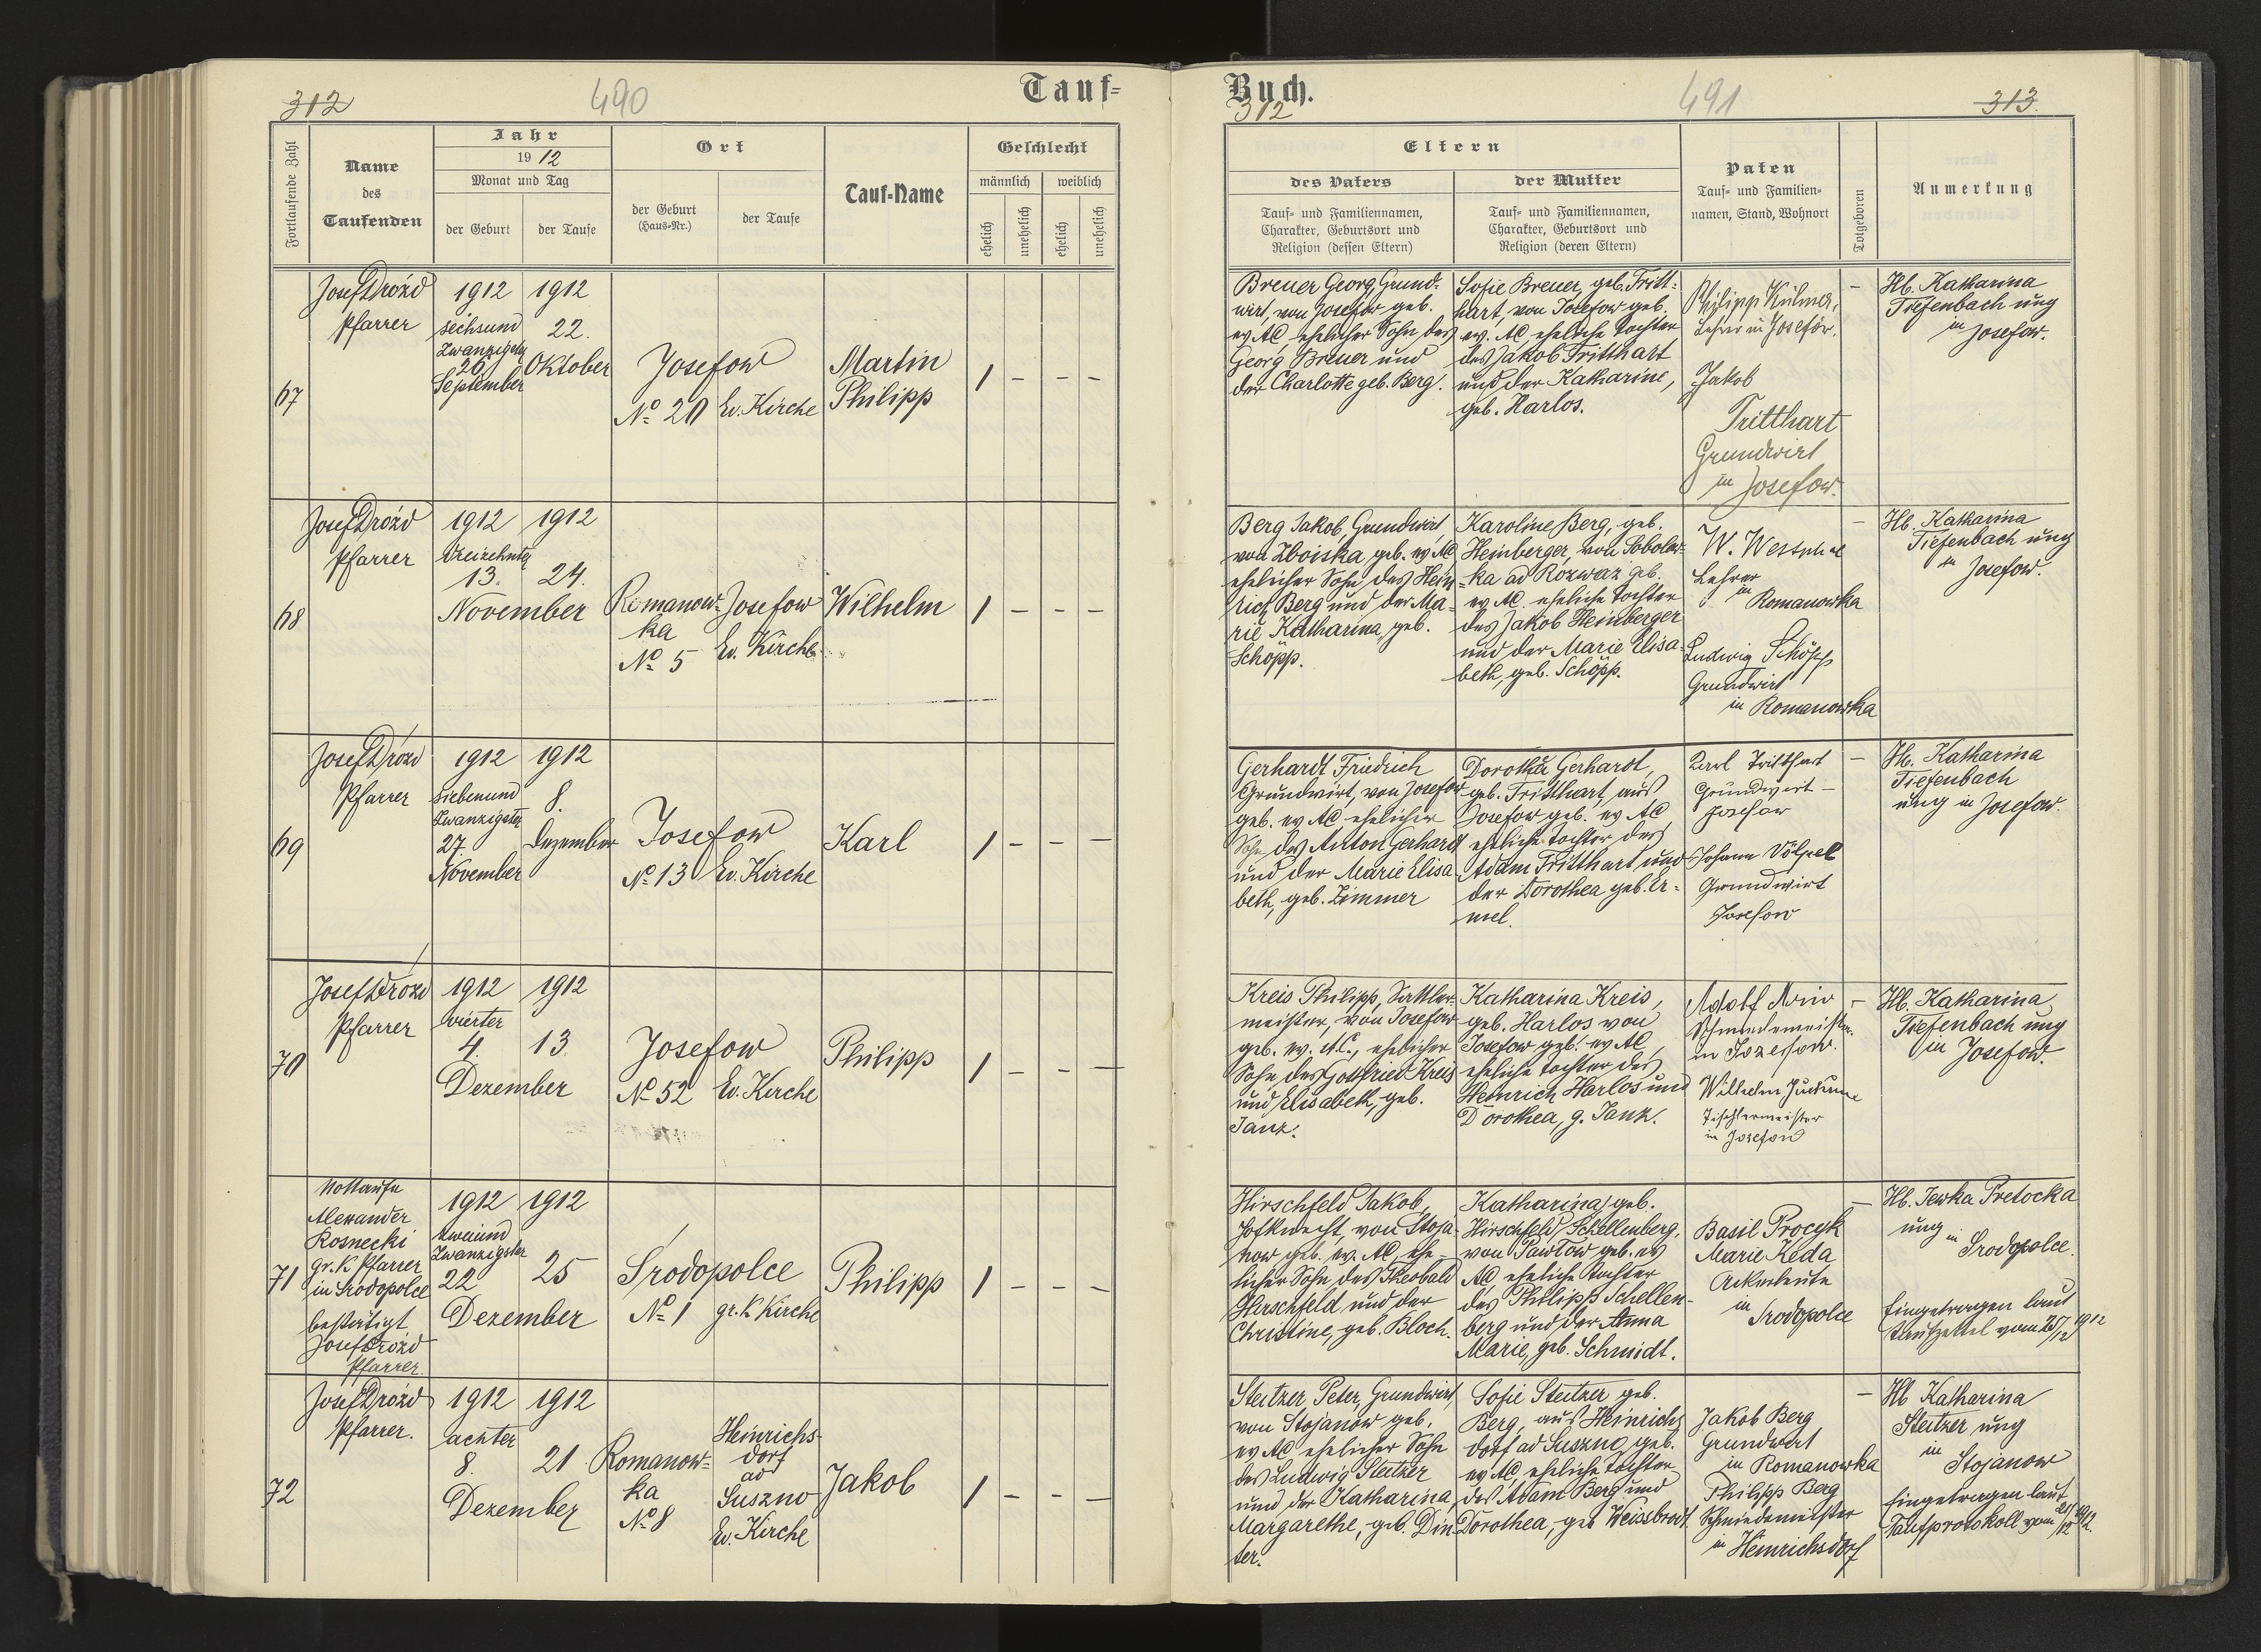 312
490
Tauf=
Fortlaufende Zahl
Name
des
Taufenden
Jahr
1912
Monat und Tag
der Geburt
der Taufe
Ort
der Geburt
(Haus-Nr.)
der Taufe
Tauf-Name
Geschlecht
männlich
weiblich
ehelich
unehelich
ehelich
unehelich
67
Josef Drózd
Pfarrer
1912
sechsund
zwanzigster
26
September
1912
22.
Oktober
Josefow
No 20
Ev. Kirche
Martin
Philipp
1 – – –
68
Josef Drózd
Pfarrer
1912
dreizehnter
13.
1912
24.
November
Romanow-
ka
No 5
Josefow
Ev. Kirche
Wilhelm
1 – – –
69
Josef Drózd
Pfarrer
1912
siebenund
zwanzigster
27
November
1912
8.
Dezember
Josefow
No 13
Ev. Kirche
Karl
1 – – –
70
Josef Drózd
Pfarrer
1912
vierter
4.
1912
13.
Dezember
Josefow
No 52
Ev. Kirche
Philipp
1 – – –
71
Nottaufe
Alexander
Rosnecki
gr. K Pfarrer
in Srodopolce
bestätigt
Josef Drózd
Pfarrer.
1912
zweiund
zwanzigster
22
1912
25
Dezember
Srodopolce
No 1
gr. K Kirche
Philipp
1 – – –
72
Josef Drózd
Pfarrer.
1912
achter
8.
1912
21
Dezember
Romanow=
ka
No 8
Heinrichs-
dorf
ad
Suszno
Ev. Kirche
Jakob
1 – – –
Buch.
312
491
313.
Eltern
des Vaters
Tauf- und Familiennamen,
Charakter, Geburtsort und
Religion (dessen Eltern)
der Mutter
Tauf- und Familiennamen,
Charakter, Geburtsort und
Religion (deren Eltern)
Paten
Tauf- und Familien-
namen, Stand, Wohnort
Totgeboren
Anmerkung
Breuer Georg, Grund-
wirt, von Josefow geb.
ev AC ehelicher Sohn des
Georg Breuer und
der Charlotte geb. Berg.
Sofie Breuer, geb. Tritt-
hart, von Josefow geb.
ev. AC eheliche Tochter
des Jakob Tritthart
und der Katharine,
geb. Harlos.
Philipp
Lehrer in Josefow.
Jakob
Tritthart
Grundwirt
in Josefow.
–
Hb. Katharina
Tiefenbach ung
in Josefow.
Berg Jakob, Grundwirt
von Zboiska, geb. ev AC
ehelicher Sohn des Hein-
rich Berg und der Ma-
rie Katharina, geb.
Schöpp.
Karoline Berg, geb.
Heinberger, von Sobolow-
ka ad Rozwaz geb.
ev AC. eheliche Tochter
des Jakob Heinberger
und der Marie Elisa-
beth, geb. Schöpp.
W. Westphal
Lehrer
in
Romanowka
Ludwig Schöpp
Grundwirt
in Romanowka
–
Hb. Katharina
Tiefenbach ung
in Josefow.
Gerhardt Friedrich
Grundwirt, von Josefow
geb. ev AC ehelicher
Sohn des Anton Gerhardt
und der Marie Elisa
beth, geb. Zimmer
Dorothea Gerhardt,
geb. Tritthart, aus
Josefow geb. ev AC
eheliche Tochter des
Adam Tritthart und
der Dorothea geb. Er-
mel.
Karl Tritthart
Grundwirt –
Josefow
Johann Völpel
Grundwirt
Josefow
–
Hb. Katharina
Tiefenbach
ung in Josefow.
Kreis Philipp, Sattler-
meister, von Josefow
geb. ev. A.C., ehelicher
Sohn des Gottfried Kreis
und Elisabeth, geb.
Janz.
Katharina Kreis,
geb. Harlos von
Josefow geb. ev AC,
eheliche Tochter des
Heinrich Harlos und
Dorothea, g. Janz.
Adolf
Schmiedemeister
in Josefow.
Wilhelm
Tischlermeister
in Josefow
–
Hb. Katharina
Tiefenbach ung
in Josefow.
Hirschfeld Jakob,
Hofknecht, von Stoja-
now geb. ev. AC, ehe-
licher Sohn des Theobald
Hirschfeld und der
Christine, geb. Bloch.
Katharina, geb.
Hirschfeld Schellenberg,
von Pawlow geb. ev
AC, eheliche Tochter
des Philipp Schellen-
berg und der Anna
Marie, geb. Schmidt.
Basil Procyk
Marie Keda
Ackerleute
in
Srodopolce
–
Hb. Jewka Pretocka
ung in
Srodopolce.
Eingetragen laut
Taufzettel vom 25/12 1912
Steitzer Peter, Grundwirt,
von Stojanow geb.
ev AC ehelicher Sohn
des Ludwig Steitzer
und der Katharina
Margarethe, geb. Din-
ter.
Sofie Steitzer geb.
Berg, aus Heinrichs
dorf ad Suszno, geb.
ev AC eheliche Tochter
des Adam Berg und
Dorothea, geb Weissbrodt.
Jakob Berg
Grundwirt
in Romanowka
Philipp Berg
Schmiedemeister
in Heinrichsdorf
–
Hb Katharina
Steitzer ung
in
Stojanow
Eingetragen laut
Taufprotokoll vom 21/12 1912.